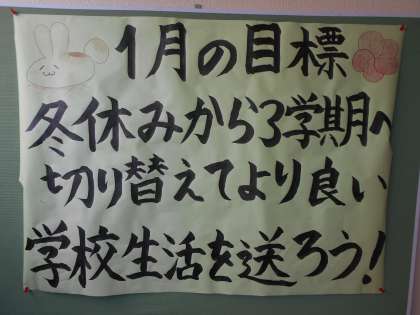 1月の目標
冬休みから3学期へ
切り替えてより良い
学校生活を送ろう!